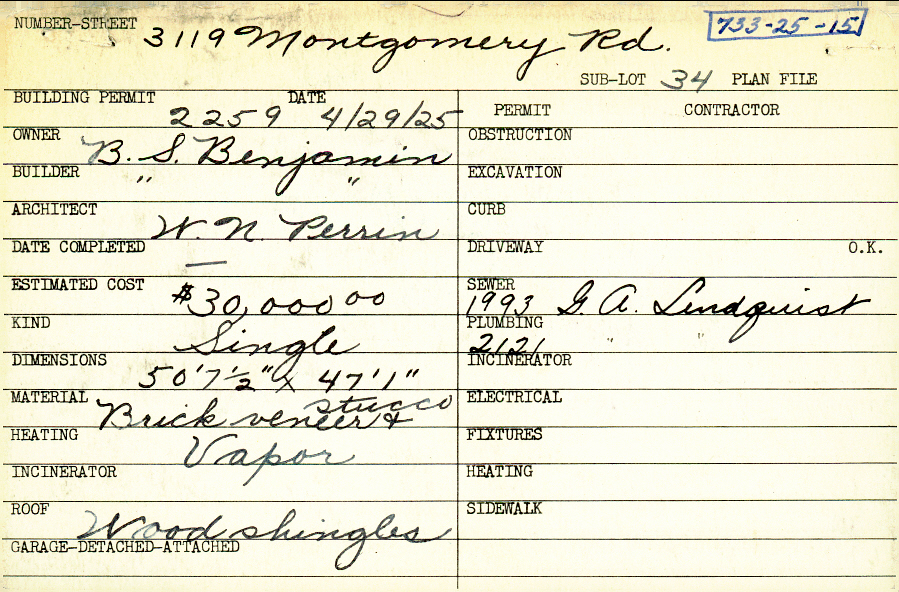 NUMBER-STREET 3119 Montgomery Rd. 733-25-15
SUB-LOT 34 PLAN FILE
BUILDING PERMIT 2259 DATE 4/29/25
PERMIT CONTRACTOR
OWNER B. S. Benjamin
OBSTRUCTION
BUILDER " "
EXCAVATION
ARCHITECT W. N. Perrin
CURB
DATE COMPLETED —
DRIVEWAY O.K.
ESTIMATED COST $30,000 00
SEWER 1993 G. A. Lindquist
KIND Single
PLUMBING 2121 " "
DIMENSIONS 50'7½" x 47'1"
INCINERATOR
MATERIAL Brick veneer & stucco
ELECTRICAL
HEATING Vapor
FIXTURES
INCINERATOR
HEATING
ROOF Wood shingles
SIDEWALK
GARAGE-DETACHED-ATTACHED